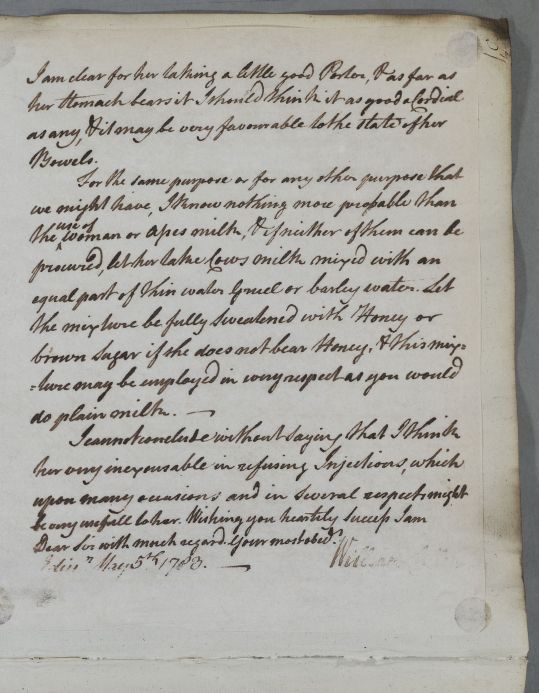 I am clear for her taking a little good Porter, & as far as
her Stomach bears it I should think it as good a Cordial
as any, & it may be very favourable to the state of her
Bowels.
For the same purpose or for any other purpose that
we might have, I know nothing more probable than
the use of woman or Apes milk, & if neither of them can be
procured, let her take Cows milk mixed with an
equal part of thin water Gruel or barley water. Let
the mixture be fully sweatened with Honey or
brown Sugar if she does not bear Honey, & this mix=
=ture may be employed in every respect as you would
do plain milk. —
I cannot conclude without saying that I think
her very inexcusable in refusing Injections, which
upon many occasions and in several respects might
be very usefull to her. Wishing you heartily success I am
Dear Sir with much regard Your most obed.t
Edin.r May 5th 1783. — William